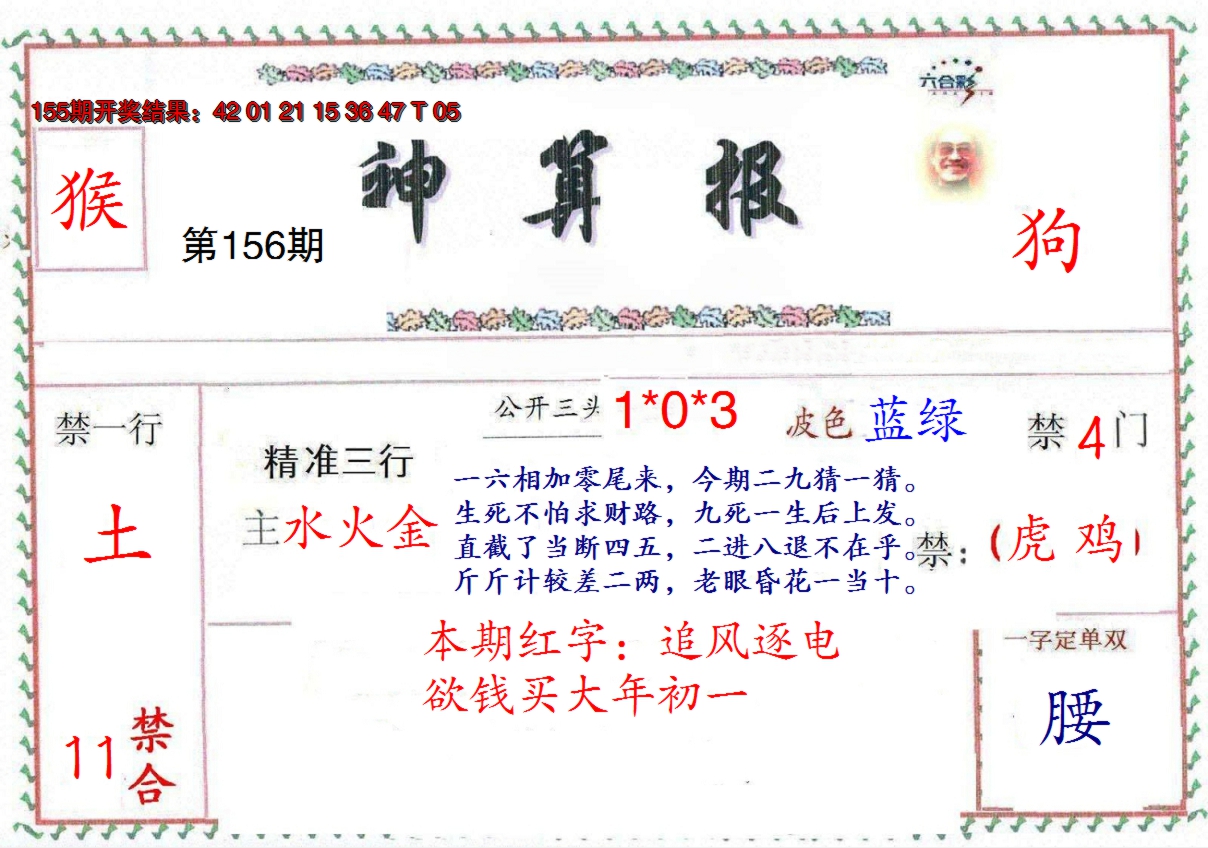 六合彩
155期开奖结果：42 01 21 15 36 47 T 05
神算报
猴
第156期
狗
公开三头 1*0*3
波色 蓝绿
禁一行
禁4门
精准三行
一六相加零尾来，今期二九猜一猜。
主水火金
生死不怕求财路，九死一生后上发。
土
直截了当断四五，二进八退不在乎。
禁：（虎 鸡）
斤斤计较差二两，老眼昏花一当十。
本期红字：追风逐电
一字定单双
欲钱买大年初一
腰
11禁合